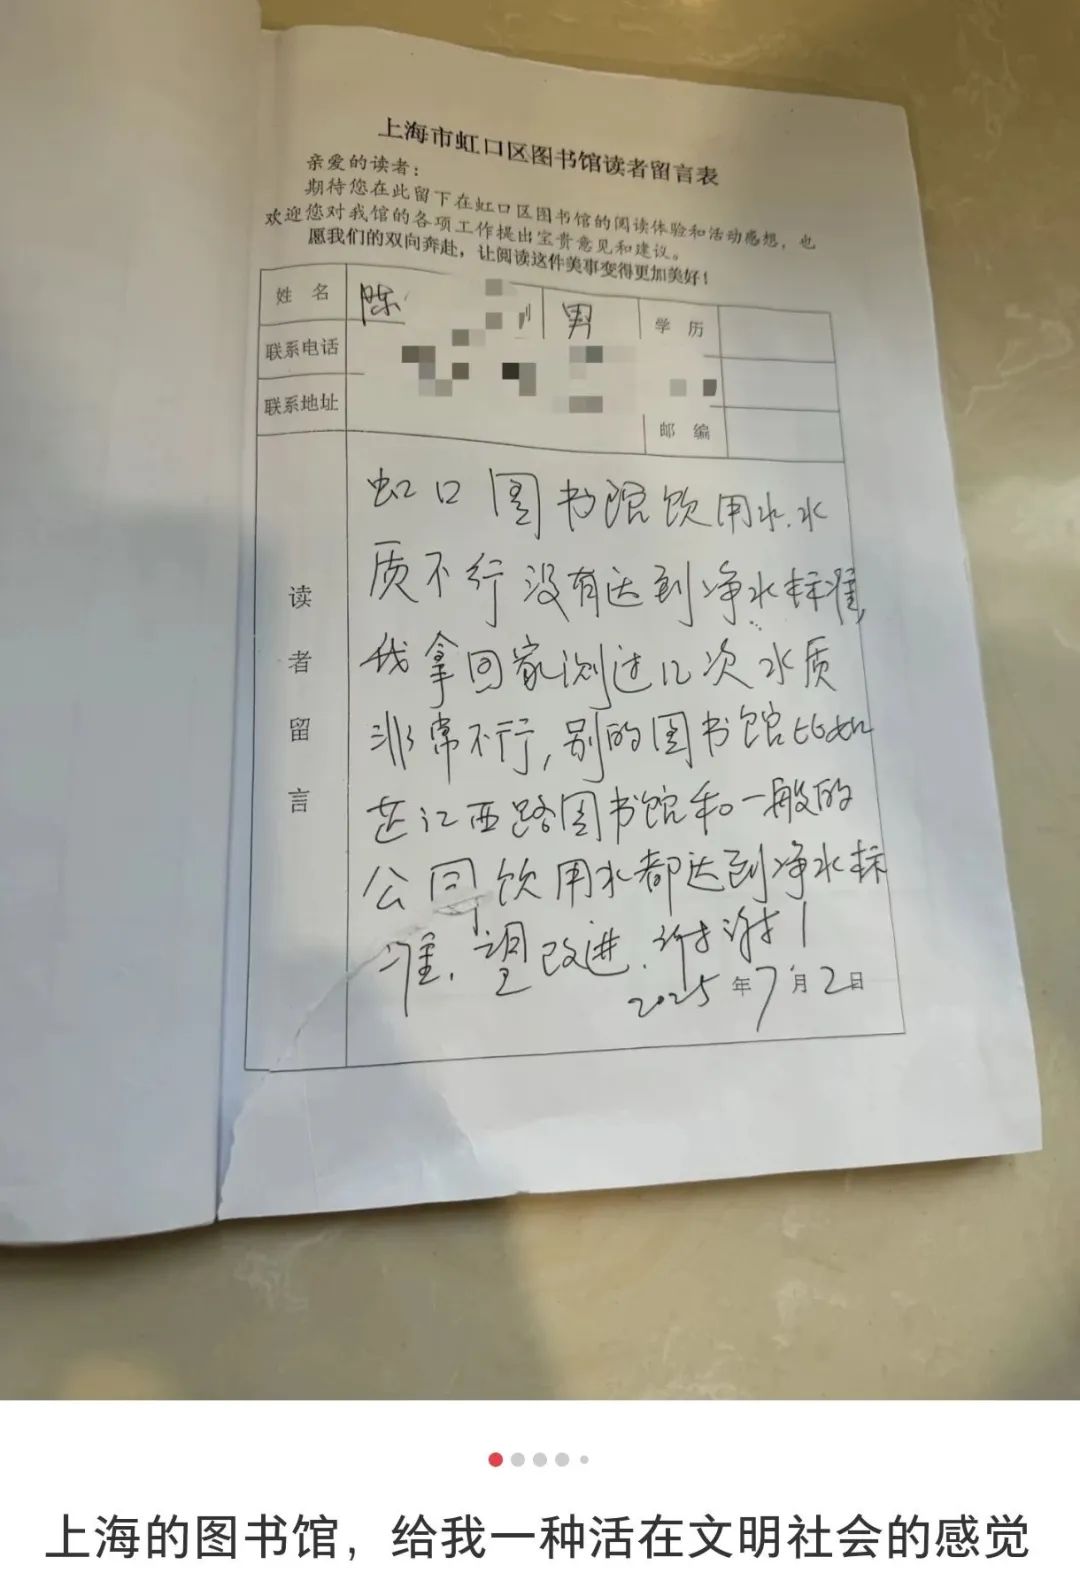 上海市虹口区图书馆读者留言表
亲爱的读者：
期待您在此留下在虹口区图书馆的阅读体验和活动感想，也
欢迎您对我馆的各项工作提出宝贵意见和建议。
愿我们的双向奔赴，让阅读这件美事变得更加美好！
姓 名 陈 男 学 历
联系电话
联系地址
邮 编
读者留言
虹口图书馆饮用水.水
质不行没有达到净水标准,
我拿回家测过几次水质
非常不行,别的图书馆比如
芷江西路图书馆和一般的
公园饮用水都达到净水标
准.望改进.谢谢!
2025年7月2日
上海的图书馆，给我一种活在文明社会的感觉